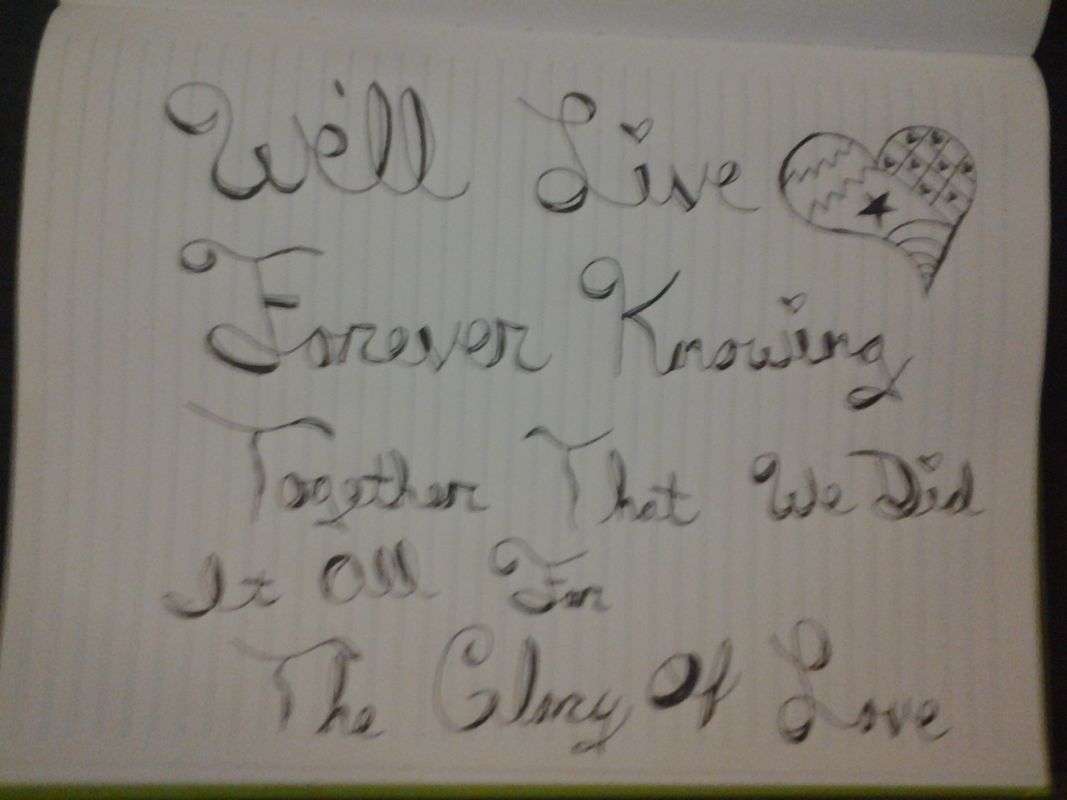 We'll Live
Forever Knowing
Together That We Did
It All For
The Glory Of Love